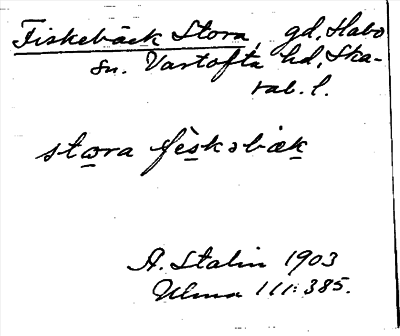 Fiskebäck Stora gd, Habo
sn. Vartofta hd, Ska-
rab. l.
stωra fèskəbæk
A. Stalin 1903
Ulma 111:385.